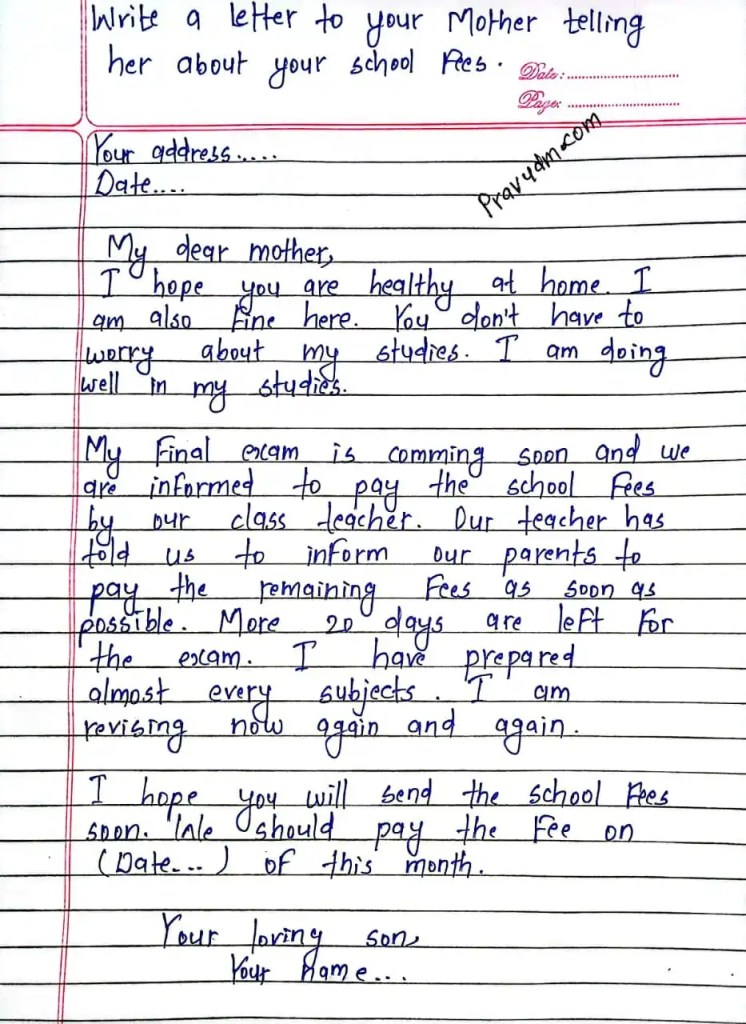 Write a letter to your Mother telling
her about your school Fees.
Date: ..............................
Page: ..............................
Pravydm.com
Your address.....
Date....
My dear mother,
I hope you are healthy at home. I
am also Fine here. You don't have to
worry about my studies. I am doing
well in my studies.
My Final exam is comming soon and we
are informed to pay the school Fees
by our class teacher. Our teacher has
told us to inform our parents to
pay the remaining Fees as soon as
possible. More 20 days are left For
the exam. I have prepared
almost every subjects. I am
revising now again and again.
I hope you will send the school Fees
soon. We should pay the Fee on
(Date....) of this month.
Your loving son,
Your Name...